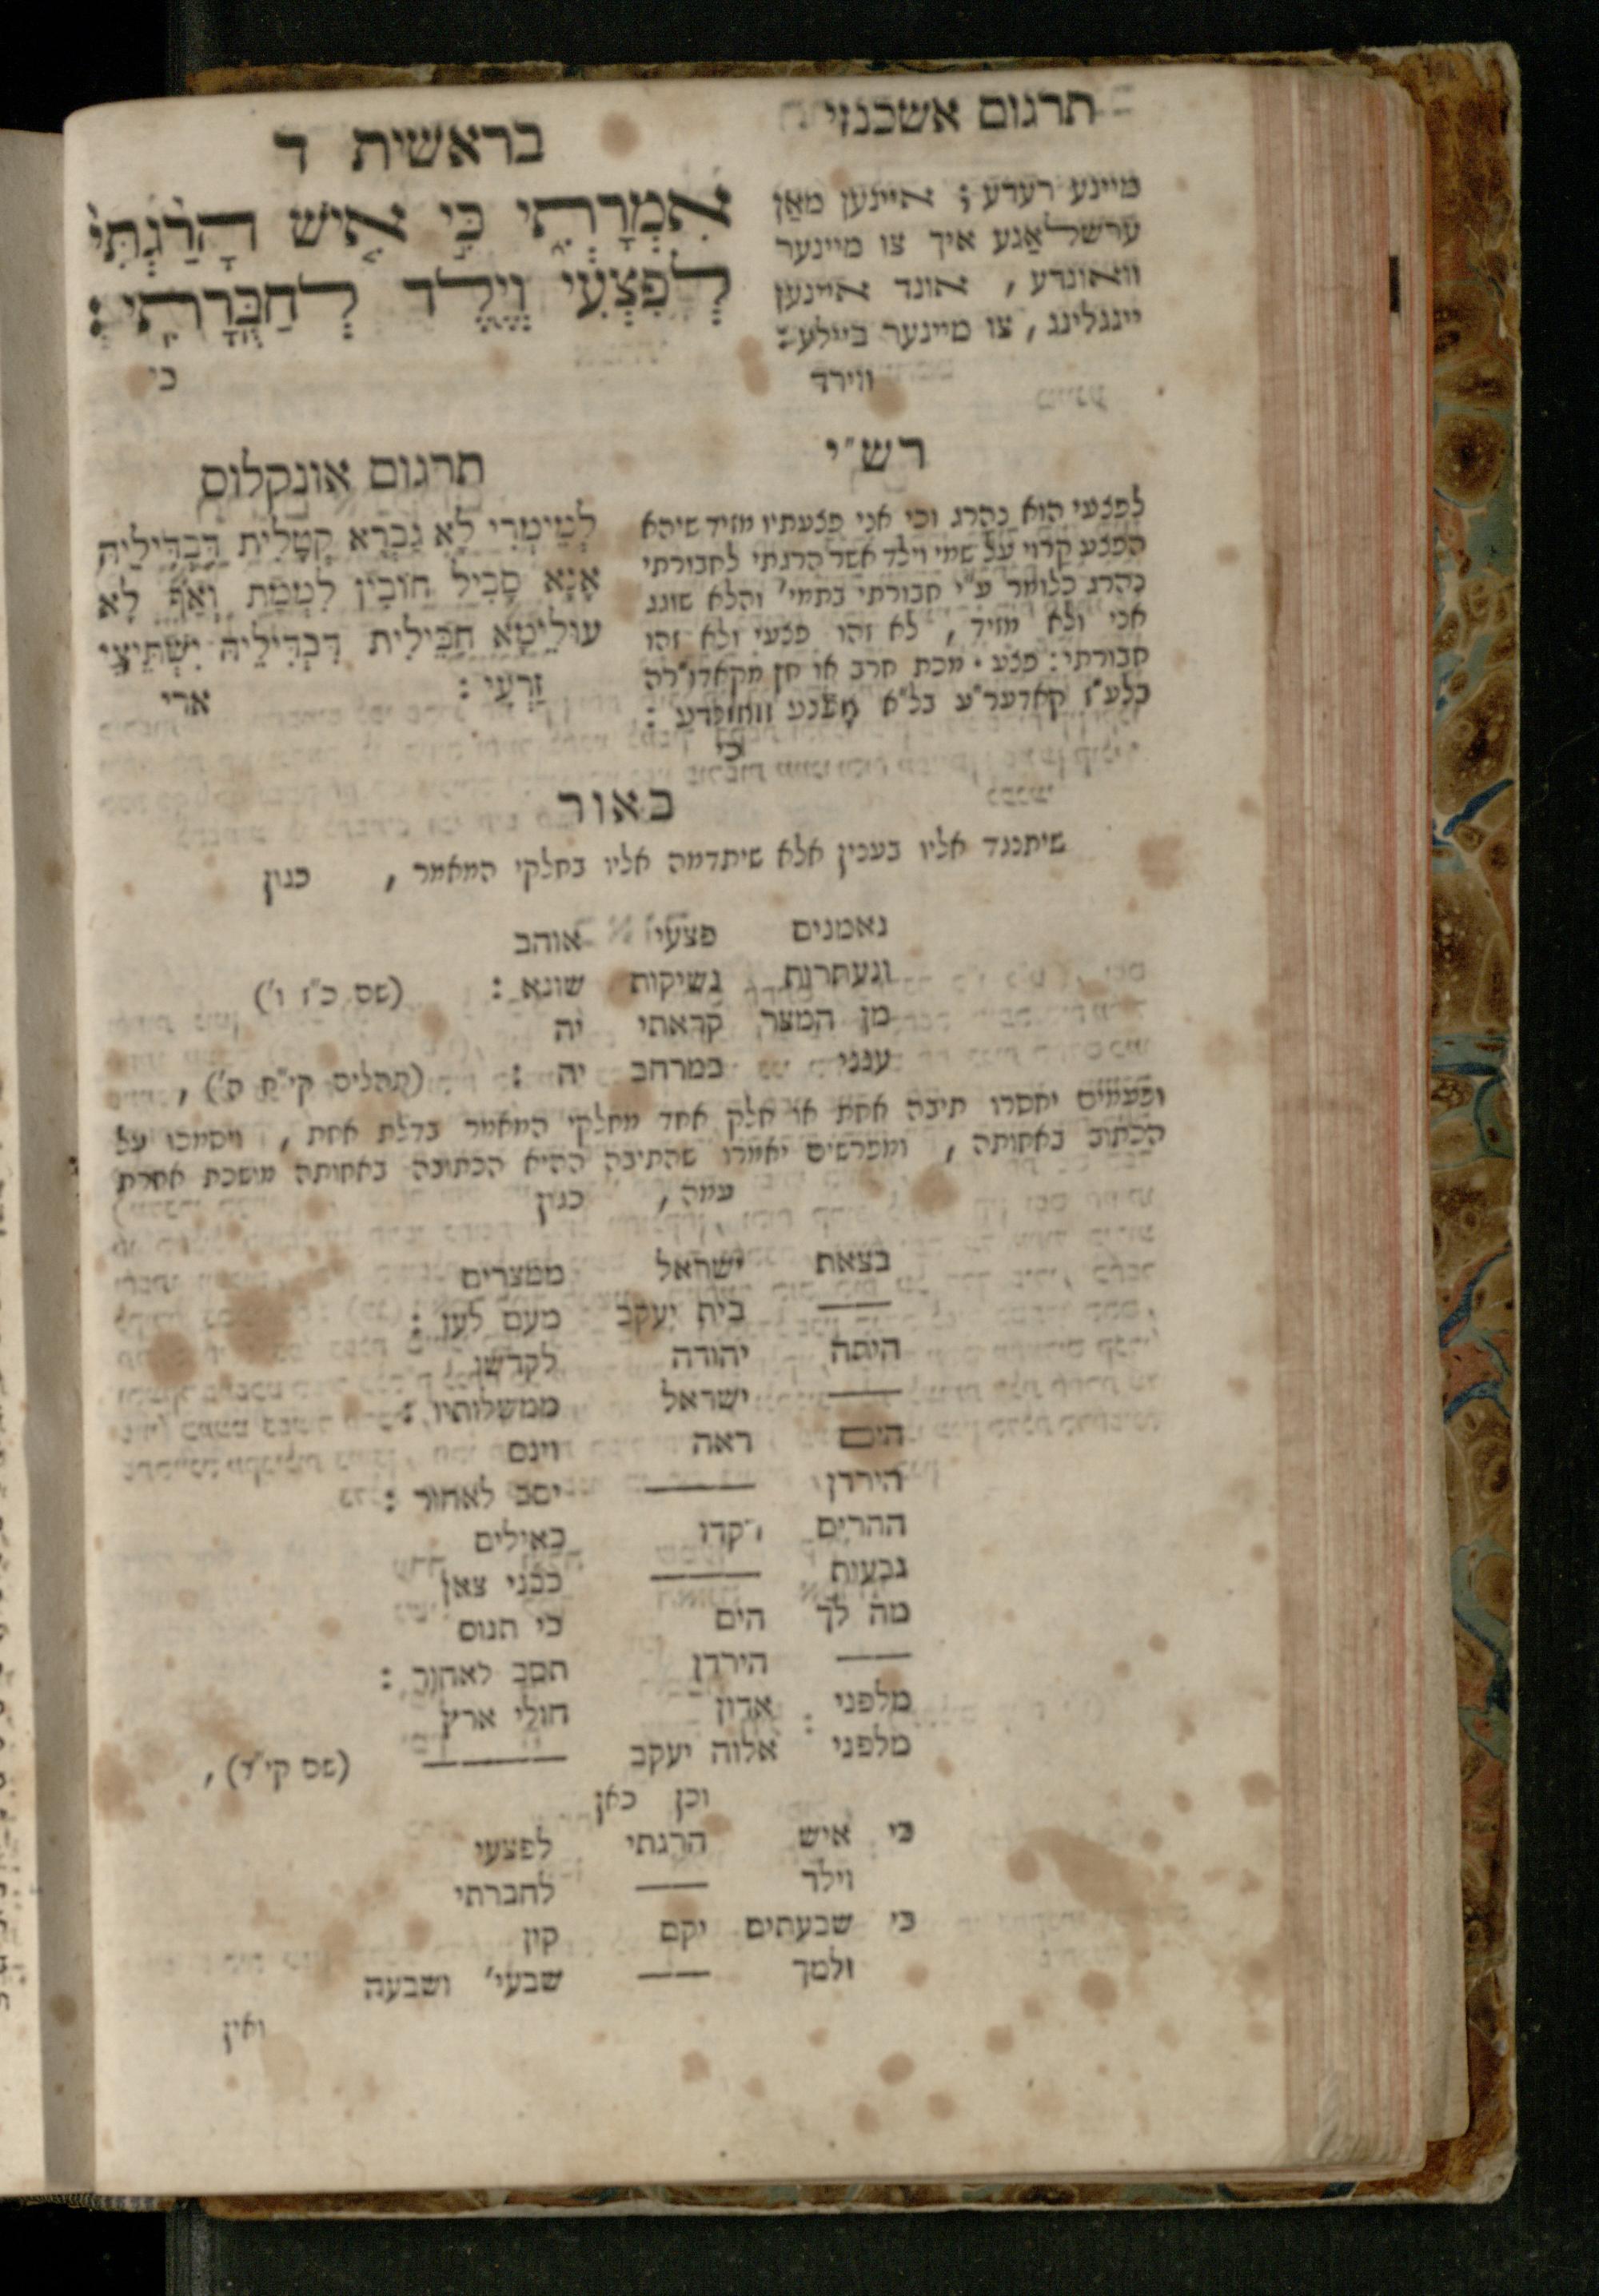 תרגום אשכנזי
בראשית ד
מיינע רעדע; איינען מאַן
ערשלאַגע איך צו מיינער
וואונדע, אונד איינען
יינגלינג, צו מיינער בײלע:
ווירד
אִמְרָתִי כִּי אִישׁ הָרַגְתִּי
לְפִצְעִי וְיֶלֶד לְחַבֻּרָתִי:
כי
רש"י
לפצעי הוא נהרג וכי אני פצעתיו מזיד שיהא
הפצע קרוי על שמי וילד אשר הרגתי לחבורתי
נהרג כלומר ע"י חבורתי בתמי' והלא שוגג
אני ולא מזיד, לא זהו פצעי ולא זהו
חבורתי: פצע . מכת חרב או חץ מקאדו"רה
בלע"ז קאדער"ע בל"א וואונדע:
כי
תרגום אונקלוס
לְמֵימְרִי לָא גַבְרָא קְטָלִית דִּבְדִּילֵיהּ
אֲנָא סָבִיל חוֹבִין לִמְמָת וְאַף לָא
עוּלֵימָא חַבֵּילִית דִּבְדִּילֵיהּ יִשְׁתֵּיצֵי
זַרְעִי:
ארי
באור
שיתנגד אליו בענין אלא שיתדמה אליו בחלקי המאמר, כגון
נאמנים פצעי אוהב
ונעתרות נשיקות שונא: (שם כ"ז ו')
מן המצר קראתי יה
ענני במרחב יה: (תהלים קי"ח ה'),
ופעמים יחסרו תיבה אחת או חלק אחד מחלקי המאמר בדלת אחת, ויסמכו על
הכתוב באחותה, ומפרשים יאמרו שהתיבה ההיא הכתובה באחותה מושכת אחרת
עמה, כגון
בצאת ישראל ממצרים
—— בית יעקב מעם לעז:
היתה יהודה לקדשו
—— ישראל ממשלותיו:
הים ראה וינס
הירדן —— יסב לאחור:
ההרים רקדו כאילים
גבעות —— כבני צאן
מה לך הים כי תנוס
—— הירדן תסב לאחור:
מלפני אדון חולי ארץ
מלפני אלוה יעקב —— (שם קי"ד),
וכן כאן
כי איש הרגתי לפצעי
וילד —— לחברתי
כי שבעתים יקם קין
ולמך —— שבעי' ושבעה
ואין